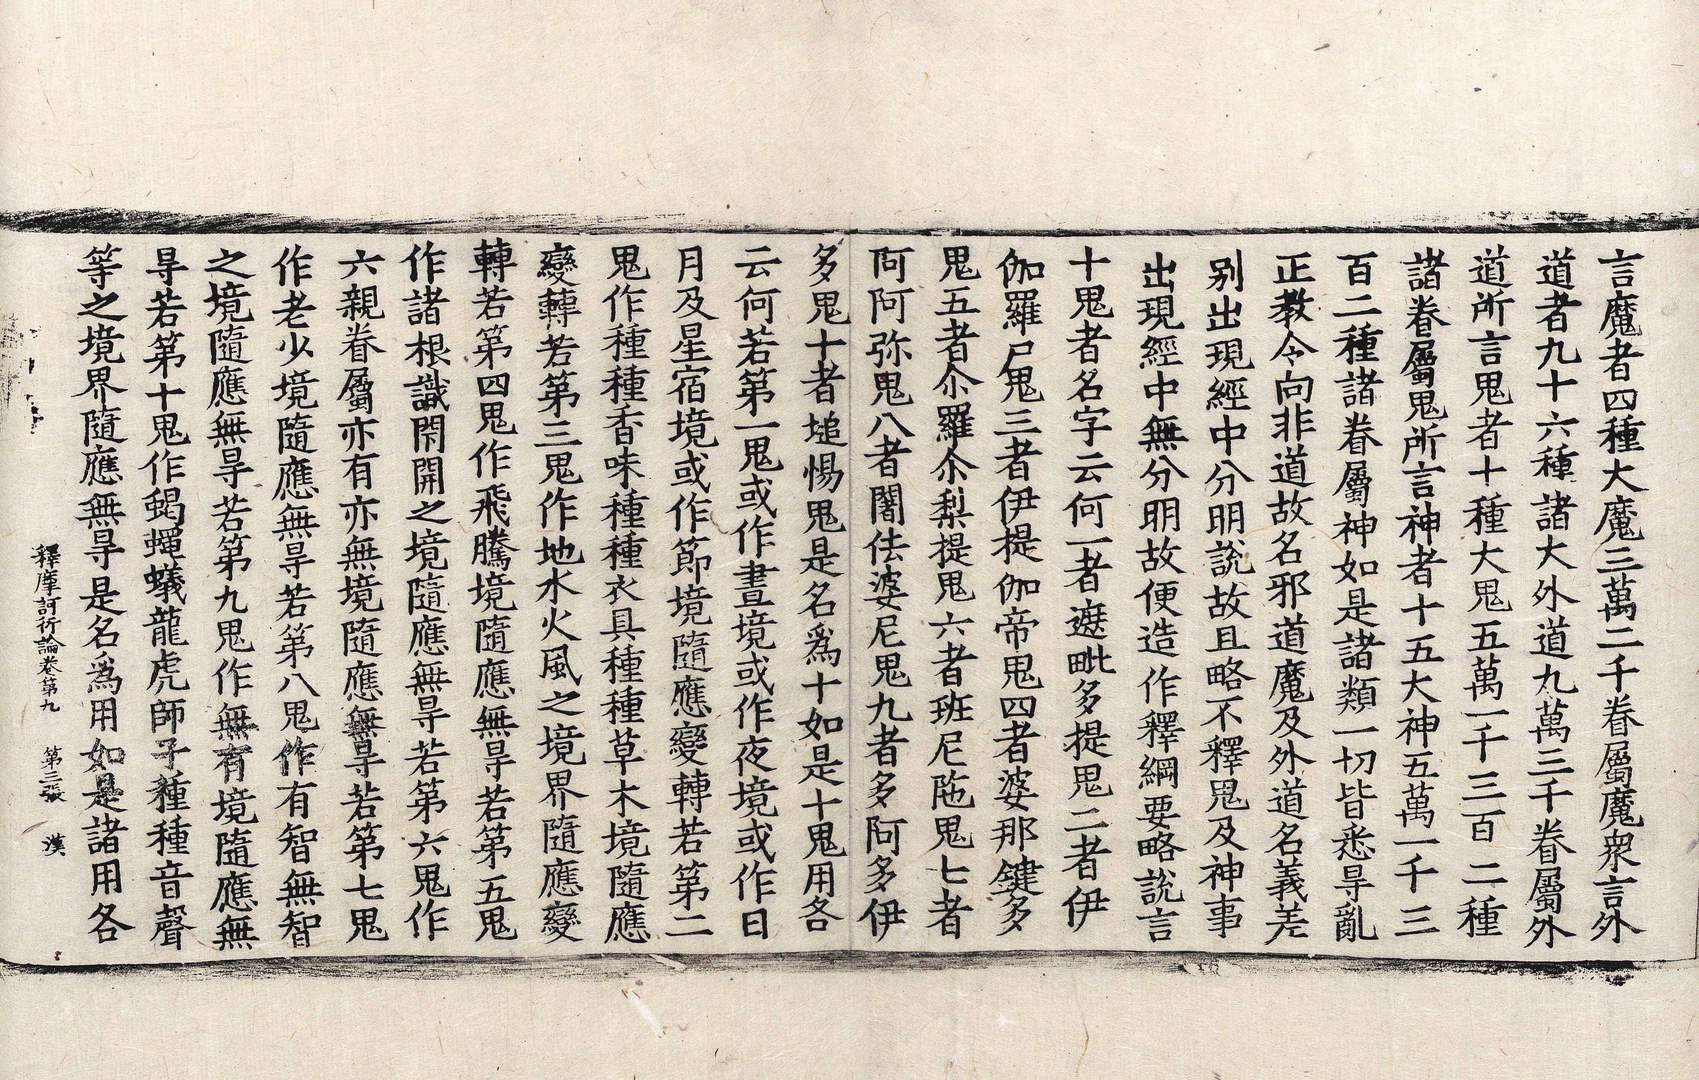 言魔者四種大魔三萬二千眷屬魔衆言外
道者九十六種諸大外道九萬三千眷屬外
道所言鬼者十種大鬼五萬一千三百二種
諸眷屬鬼所言神者十五大神五萬一千三
百二種諸眷屬神如是諸類一切皆悉㝵亂
正教令向非道故名邪道魔及外道名義差
別出現經中分明說故且略不釋鬼及神事
出現經中無分明故便造作釋綱要略說言
十鬼者名字云何一者遮毗多提鬼二者伊
伽羅尸鬼三者伊提伽帝鬼四者婆那鍵多
鬼五者尒羅尒梨提鬼六者班尼陁鬼七者
阿阿弥鬼八者闍佉婆尼鬼九者多阿多伊
多鬼十者塠惕鬼是名爲十如是十鬼用各
云何若第一鬼或作晝境或作夜境或作日
月及星宿境或作節境隨應變轉若第二
鬼作種種香味種種衣具種種草木境隨應
變轉若第三鬼作地水火風之境界隨應變
轉若第四鬼作飛騰境隨應無㝵若第五鬼
作諸根識閇開之境隨應無㝵若第六鬼作
六親眷屬亦有亦無境隨應無㝵若第七鬼
作老少境隨應無㝵若第八鬼作有智無智
之境隨應無㝵若第九鬼作無有境隨應無
㝵若第十鬼作蝎蠅蟻龍虎師子種種音聲
等之境界隨應無㝵是名爲用如是諸用各
釋摩訶衍論卷第九 第三張 漢